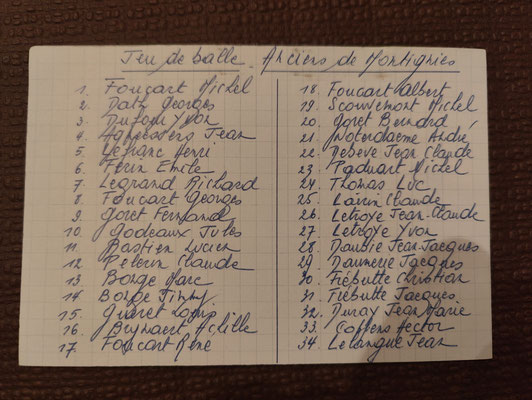 Jeu de balle. Anciers de Montignies
1. Foucart Michel
2. Dath Georges
3. Dufour Yvon
4. Jean
5. Lefranc Henri
6. Ferin Emile
7. Legrand Richard
8. Foucart Georges
9. Goret Fernand
10. Godeaux Jules
11. Bastien Lucien
12 Pelerin Claude
13. Borge Marc
14. Borge Jimmy
15. Quéret Louis
16. Achille
17. Foucart René
18. Foucart Albert
19. Scouvemont Michel
20. Goret Bernard
21. Noterdaeme André
22. Debève Jean Claude
23. Paduart Michel
24. Thomas Luc
25. Claude
26. Letroye Jean-Claude
27. Letroye Yvon
28. Jean Jacques
29. Jacques
30. Fiébutte Christian
31. Fiébutte Jacques
32. Duray Jean Marie
33. Coppens Hector
34. Lelangue Jean